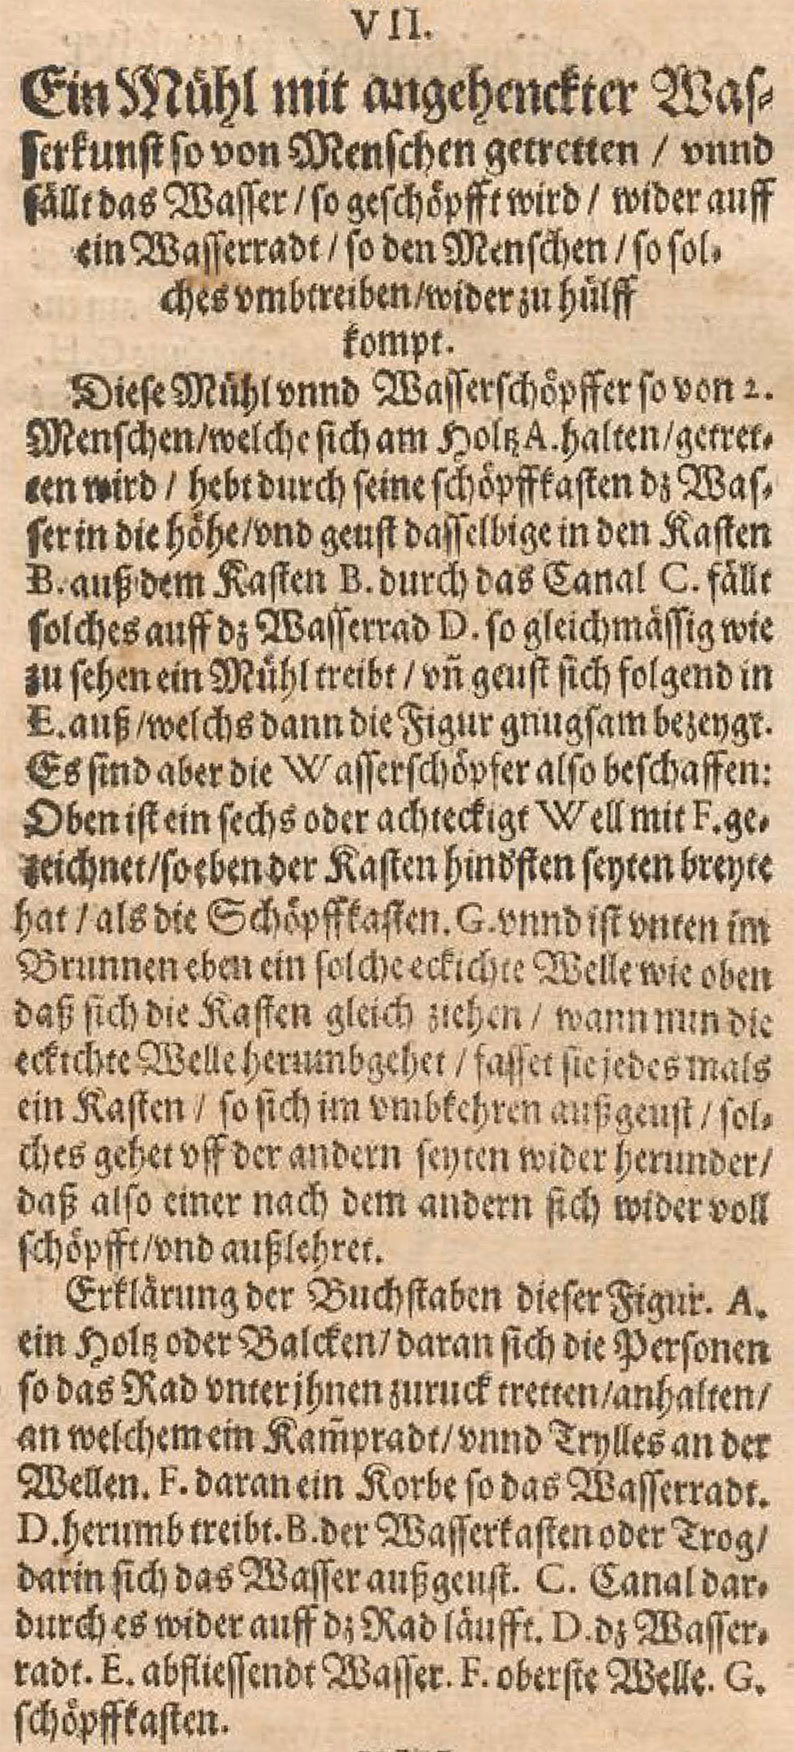 VII.
Ein Mühl mit angehenckter Was⸗
serkunst so von Menschen getretten / vnnd
fällt das Wasser / so geschöpfft wird / wider auff
ein Wasserradt / so den Menschen / so sol⸗
ches vmbtreiben/wider zu hülff
kompt.
Diese Mühl vnnd Wasserschöpffer so von 2.
Menschen/welche sich am Holtz A. halten/getret⸗
ten wird / hebt durch seine schöpffkasten dz Was⸗
ser in die höhe/vnd geust dasselbige in den Kasten
B. auß dem Kasten B. durch das Canal C. fällt
solches auff dz Wasserrad D. so gleichmässig wie
zu sehen ein Mühl treibt / vñ geust sich folgend in
E. auß /welchs dann die Figur gnugsam bezeygt.
Es sind aber die Wasserschöpfer also beschaffen:
Oben ist ein sechs oder achteckigt Well mit F. ge⸗
zeichnet/so eben der Kasten hindsten seyten breyte
hat / als die Schöpffkasten. G. vnnd ist vnten im
Brunnen eben ein solche eckichte Welle wie oben
daß sich die Kasten gleich ziehen / wann nun die
eckichte Welle herumbgehet / fasset sie jedes mals
ein Kasten / so sich im vmbkehren außgeust / sol⸗
ches gehet vff der andern seyten wider herunder/
daß also einer nach dem andern sich wider voll
schöpfft/vnd außlehret.
Erklärung der Buchstaben dieser Figur. A.
ein Holtz oder Balcken/daran sich die Personen
so das Rad vnter jhnen zuruck tretten/anhalten/
an welchem ein Kam̃pradt/vnnd Trylles an der
Wellen. F. daran ein Korbe so das Wasserradt.
D. herumb treibt. B. der Wasserkasten oder Trog/
darin sich das Wasser außgeust. C. Canal dar⸗
durch es wider auff dz Rad läufft. D. dz Wasser⸗
radt. E. abfliessendt Wasser. F. oberste Welle. G.
schöpffkasten.